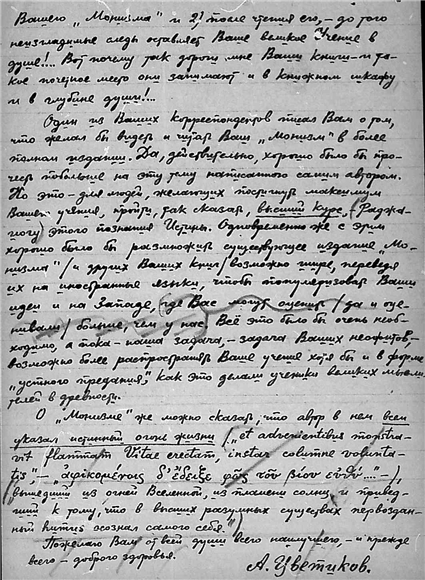 Вашего „Монизма" и 2) после чтения его, – до того
неизгладимые следы оставляет Ваше великое Учение в
душе!.. Вот почему так дороги мне Ваши книги – и та-
кое почетное место они занимают и в книжном шкафу
и в глубине души!...
Один из Ваших корреспондентов писал Вам о том,
что желал бы видеть и читать Ваш „Монизм" в более
полном издании. Да, действительно, хорошо было бы про-
честь побольше на эту тему написанного самим автором.
Но это – для людей, желающих постигнуть максимум
Вашего учения, пройти, так сказать, высший курс, (Раджа-
йогу) этого познания Истины. Одновременно же с этим
хорошо было бы размножить существующее издание „Мо-
низма" (и других Ваших книг) возможно шире, переведя
их на иностранные языки, чтобы популяризовать Ваши
идеи и на Западе, где Вас могут оценить (да и оце-
нивают) больше, чем у нас. Всё это было бы очень необ-
ходимо, а пока – наша задача, – задача Ваших неофитов, –
возможно более распространять Ваше учение хотя бы и в форме
„устного предания", как это делали ученики великих мысли-
телей в древности.
О „Монизме" же можно сказать, что автор в нем всем
указал истинный огонь жизни („et advenientibus monstra-
vit flammam Vitae erectam, instar columnae
– ἀφικομένοις δ' ἔδειξε φῶς τοῦ βίου εὐθύ ...." –),
вышедший из огней Вселенной, из пламени солнц и привед-
ший к тому, что в высших разумных существах первоздан-
ный осознал самого себя."
Пожелаю Вам от всей души всего наилучшего, – и прежде
всего – доброго здоровья.
А. Цветиков.